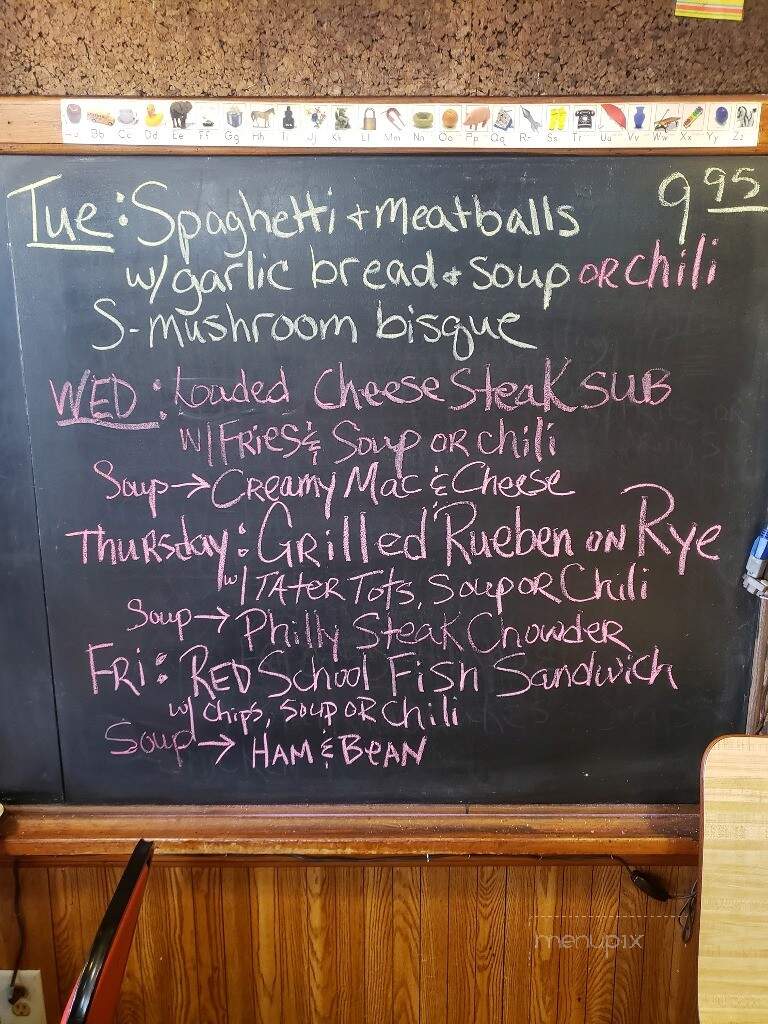 Aa Bb Cc Dd Ee Ff Gg Hh Ii Jj Kk Ll Mm Nn Oo Pp Qq Rr Ss Tt Uu Vv Ww Xx Yy Zz
Tue: Spaghetti & meatballs 9 95
w/ garlic bread & soup OR chili
S- mushroom bisque
WED: Loaded Cheese Steak SUB
W/ FRIES & Soup OR chili
Soup → CREAMY Mac & Cheese
THURSday: GRilled Rueben ON Rye
w/ TATER TOTS, SOUP OR Chili
Soup → Philly Steak Chowder
FRI: RED School Fish Sandwich
w/ chips, SOUP OR Chili
Soup → HAM & BEAN
menupix